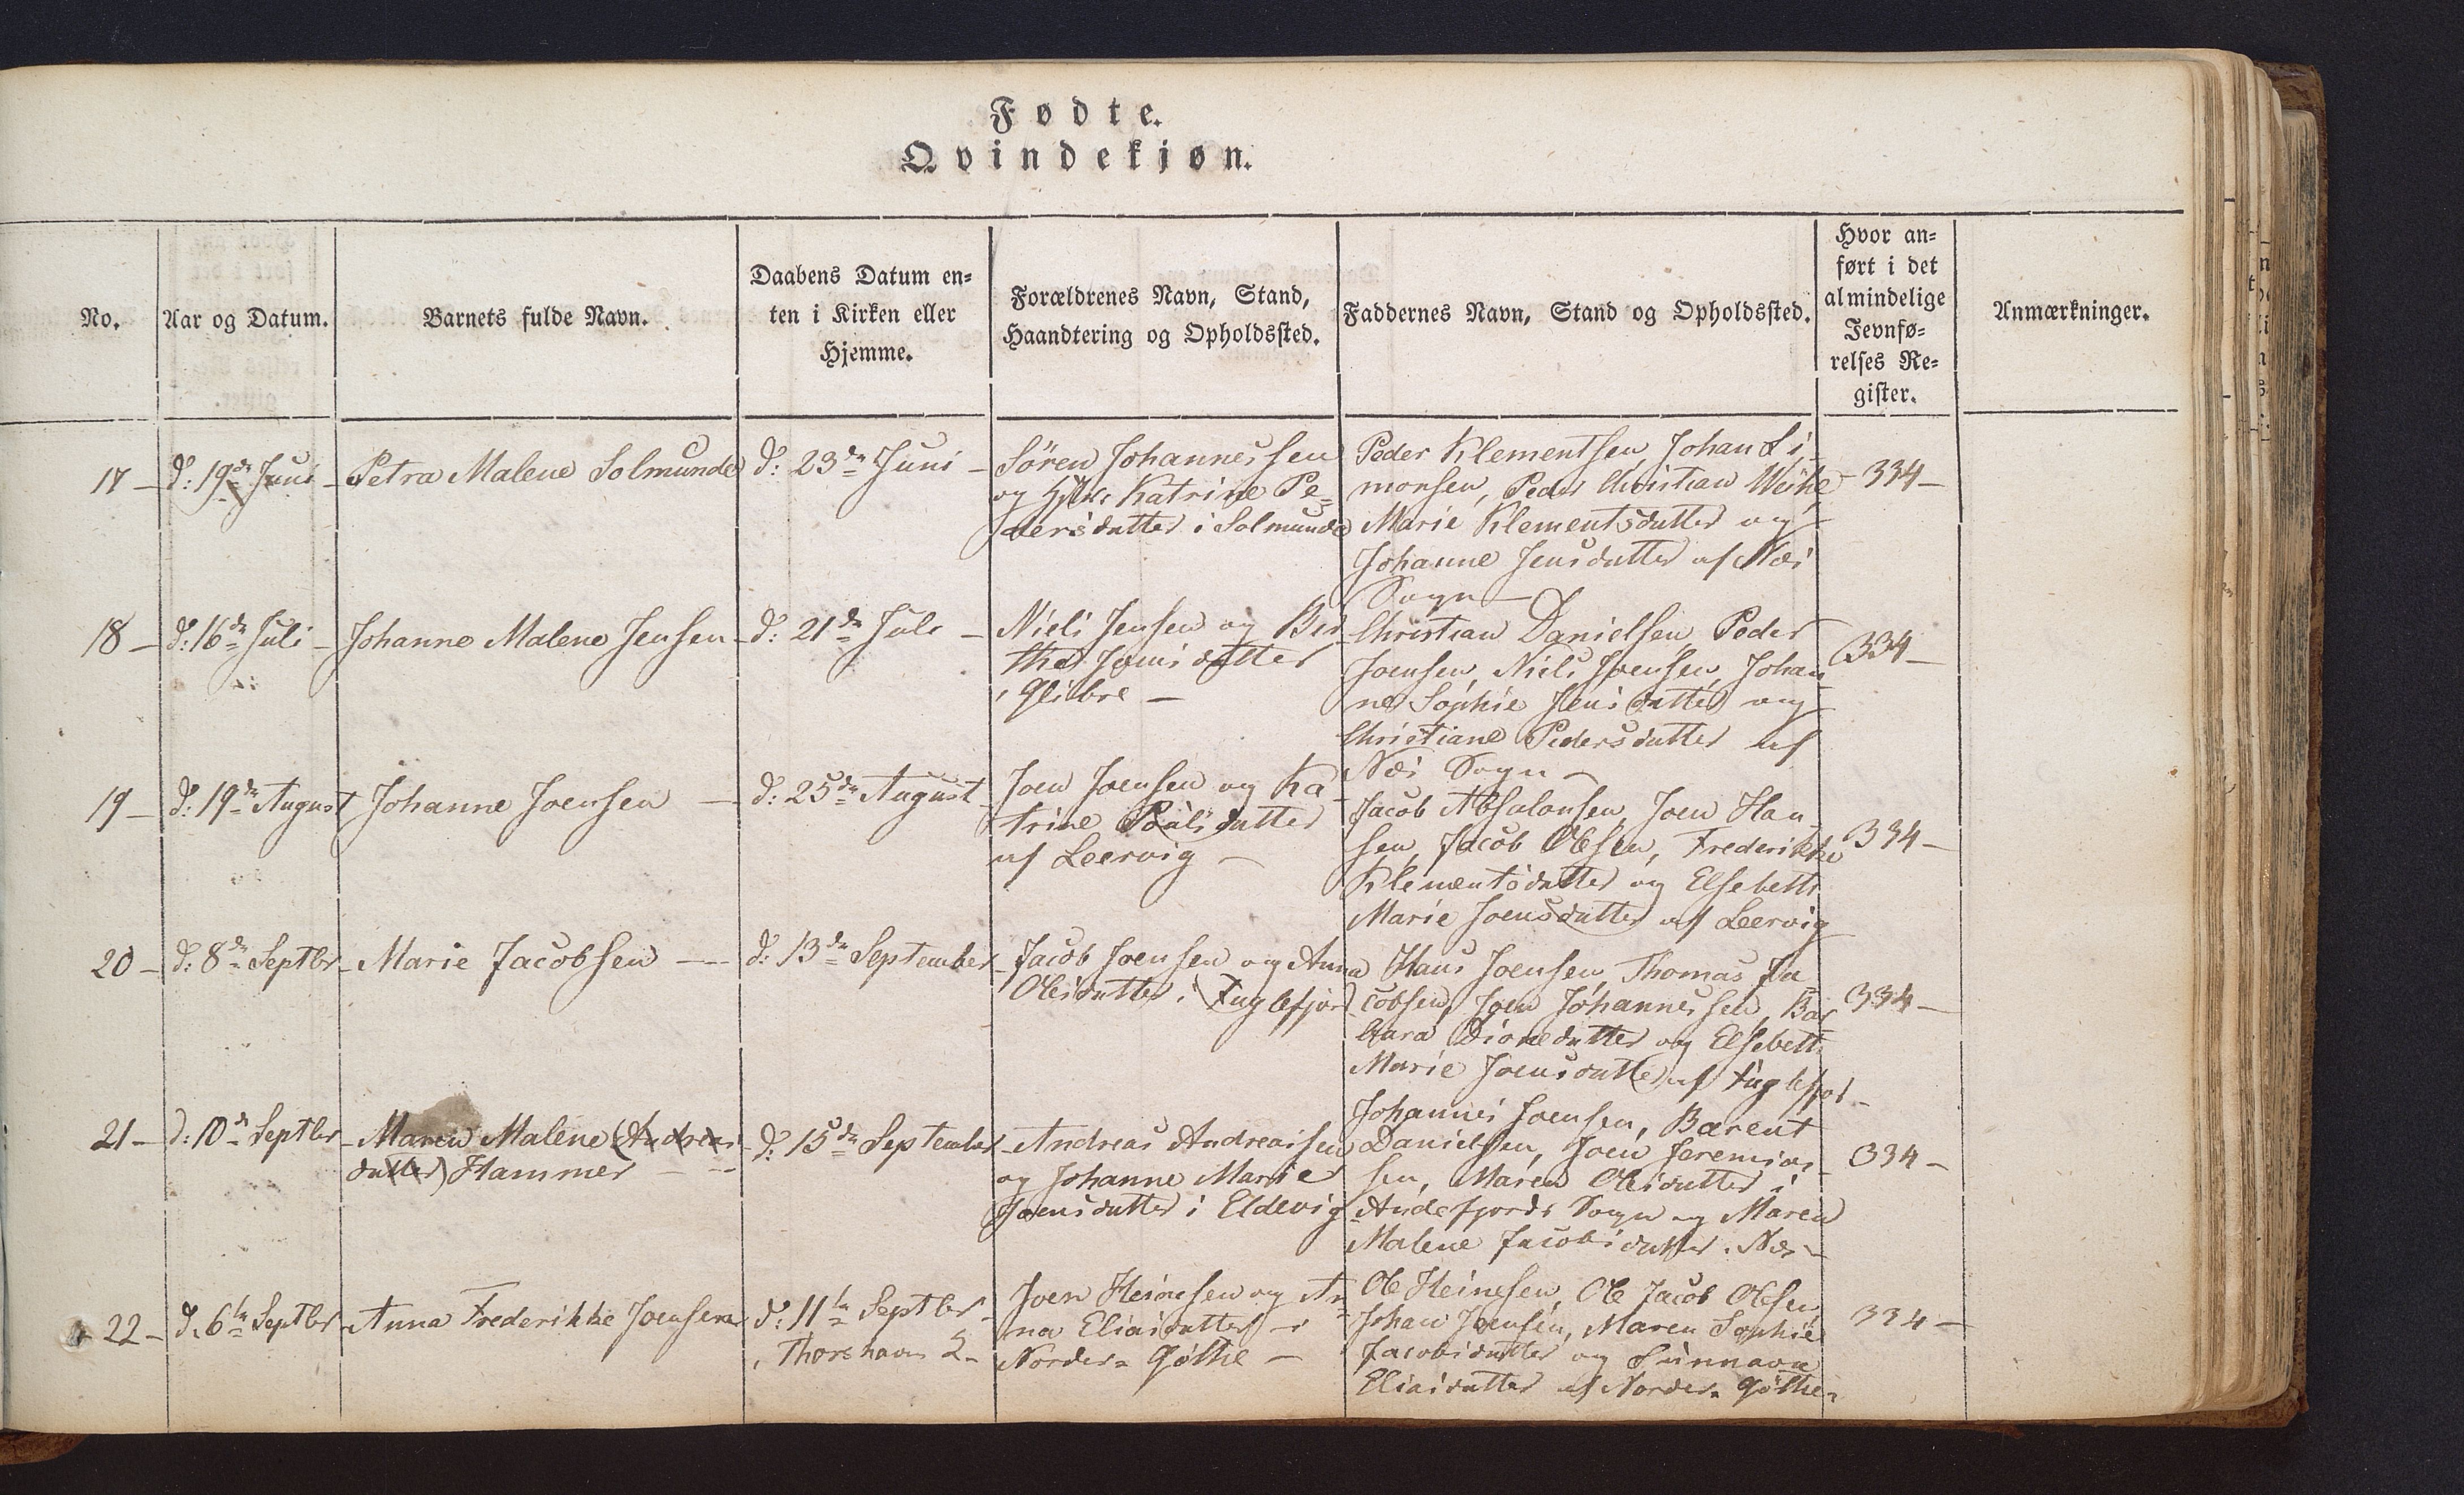 Fødte.
Qvindekjøn.
No.
Aar og Datum.
Barnets fulde Navn.
Daabens Datum en=
ten i Kirken eller
Hjemme.
Forældrenes Navn, Stand,
Haandtering og Opholdssted.
Faddernes Navn, Stand og Opholdssted.
Hvor an=
ført i det
almindelige
Jevnfø=
relses Re=
gister.
Anmærkninger.
17 –
d: 19de Juni –
Petra Malene Solmunde
d: 23de Juni –
Søren Johannessen
og Katrine Pe=
dersdatter i Solmunde
Peder Klementsen, Johan Si
monsen, Peder Christian Weihe
Marie Klementsdatter og
Johanne Jensdatter af Næs
Sogn –
334 –
18 –
d: 16de Juli –
Johanne Malene Jensen –
d: 21de Juli –
Niels Jensen og Ber
the Joensdatter
i Glibre –
Christian Danielsen, Peder
Joensen, Niels Joensen, Johan
ne Sophie Jensdatter og
Christiane Pedersdatter af
Næs Sogn –
334 –
19 –
d: 19de August
Johanne Joensen –
d: 25de August
Joen Joensen og Ka
trine Poulsdatter
af Leervig –
Jacob Absalonsen, Joen Han
sen, Jacob Olesen, Frederikke
Klementsdatter og Elsebeth
Marie Joensdatter af Leervig
334 –
20 –
d: 8de Septbr –
Marie Jacobsen –
d: 13de September
Jacob Joensen og Anna
Olesdatter i Fuglefjord
Hans Joensen, Thomas Ja
cobsen, Joen Johannessen, Bar
bara datter og Elsebeth
Marie Joensdatter af Fuglefjord –
334 –
21 –
d: 10de Septbr –
Maren Malene (Andreas
datter) Hammer –
d: 15de September
Andreas Andreassen
og Johanne Marie
Joensdatter i Eldevig
Johannes Joensen, Barent
Danielsen, Joen Jeremias
sen, Maren Olesdatter i
Andefjords Sogn og Maren
Malene Jacobsdatter i Næs –
334 –
22 –
d. 6te Septbr
Anna Frederikke Joensen
d: 11te Septbr
i Thorshavn
Joen Heinesen og An
na Eliasdatter i
Norder=Gøthe –
Ole Heinesen, Ole Jacob Olesen,
Johan Joensen, Maren Sophie
Jacobsdatter og Sunnava
Eliasdatter af Norder=Gøthe –
334 –